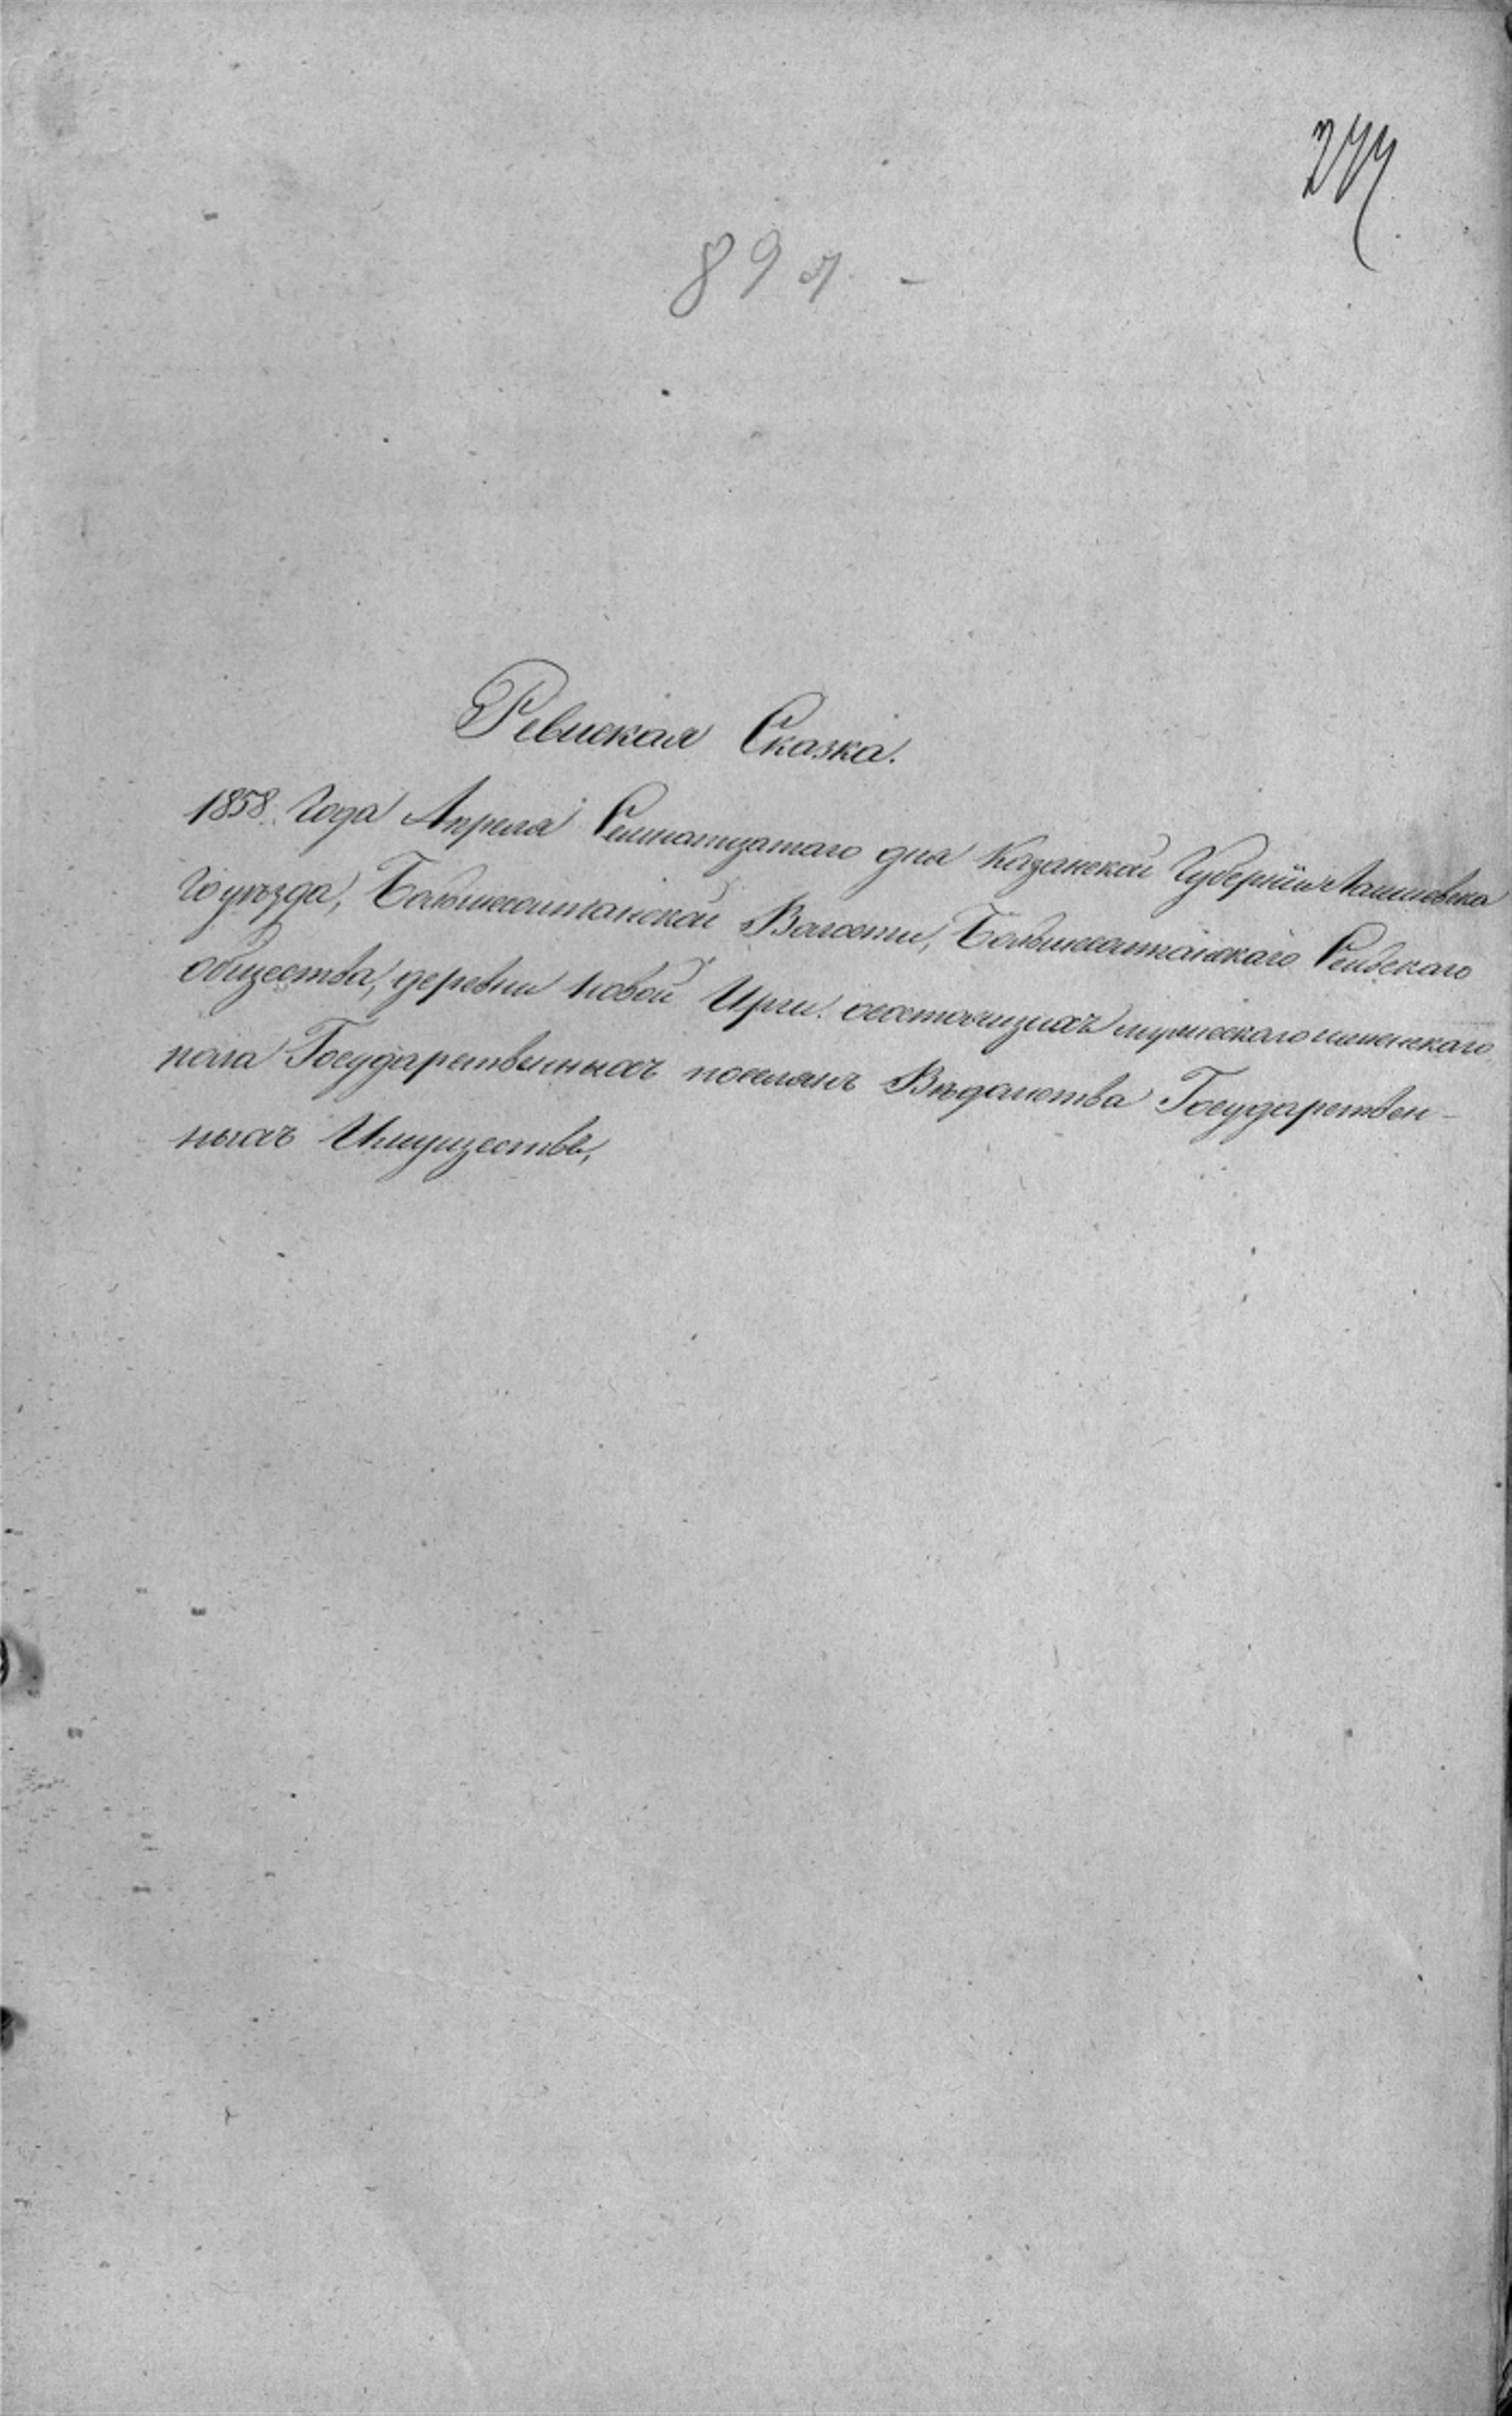 277
89 д. -
Ревиская Сказка.
1858. Года Апреля Семнатцатаго дня Казанской Губернiи Лаишевска
го уѣзда, Большесаитанской Волости, Большесаитанскаго Сельскаго
общества, деревни Новой Ирги. состоящихъ мужескаго и женскаго
пола Государственныхъ поселянъ Вѣдомства Государствен-
ныхъ Имуществъ,